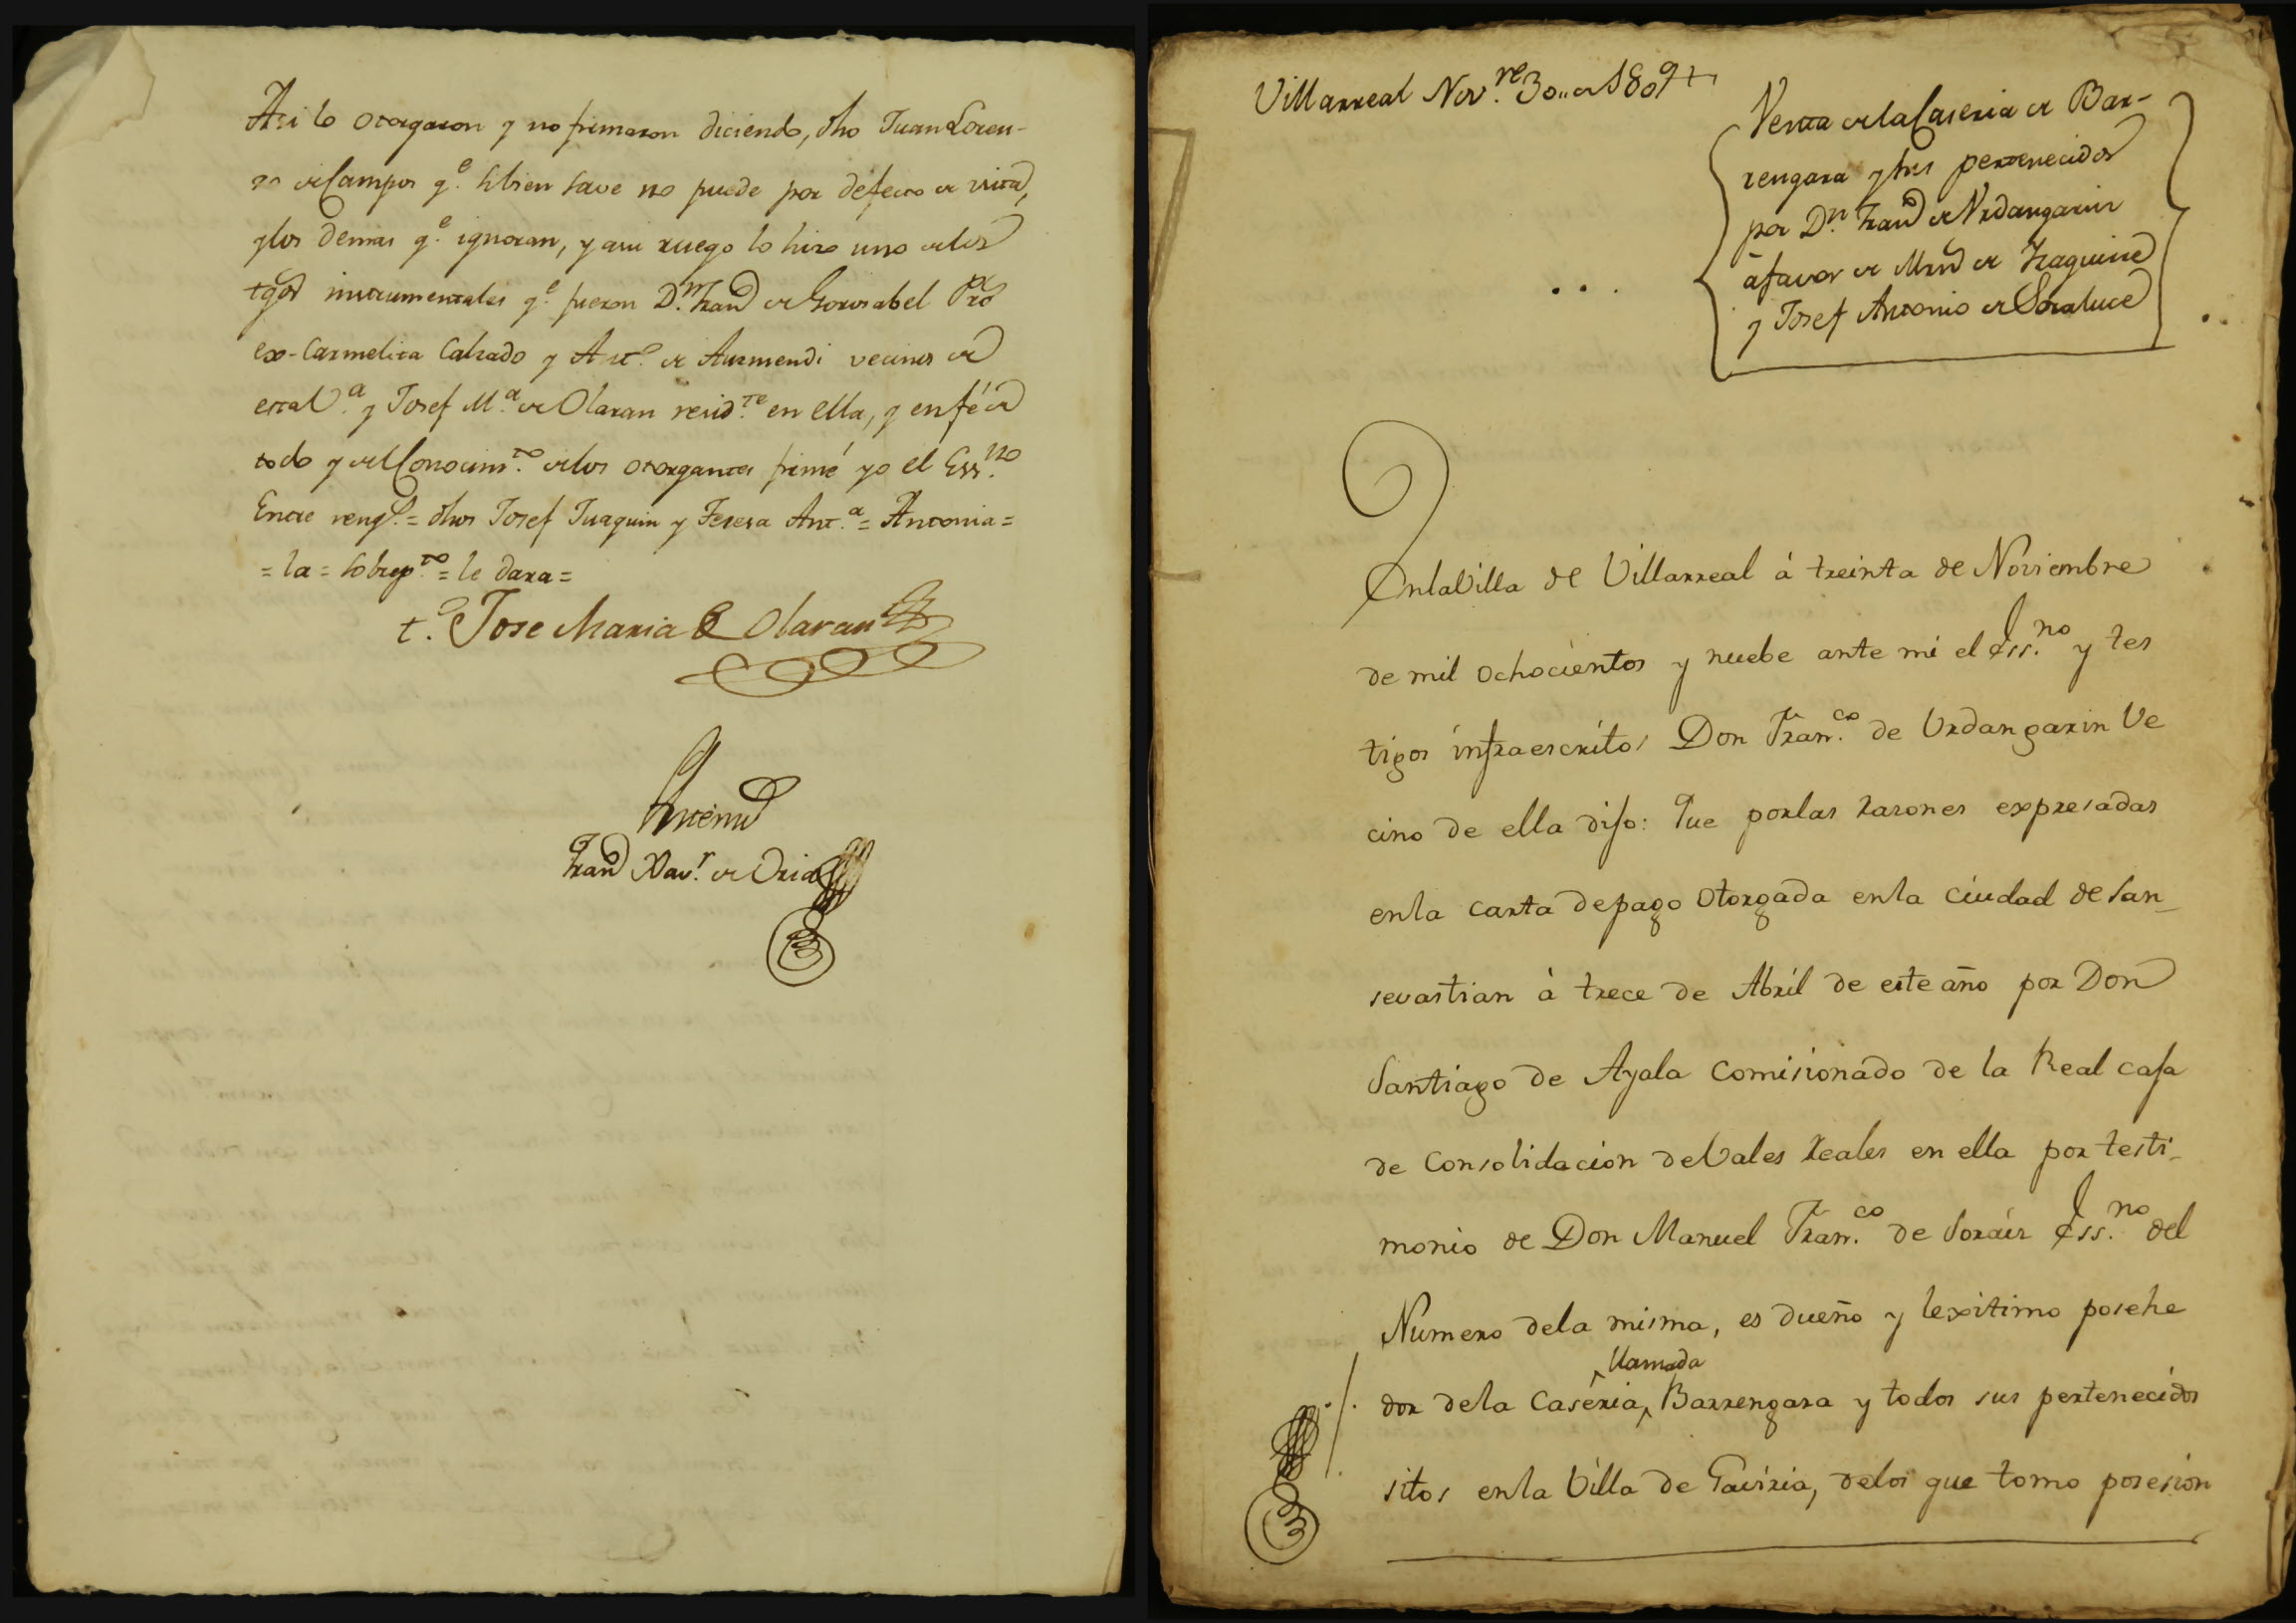 Asi lo otorgaron y no firmaron diciendo, dho Juan Loren-
zo de Campos q.e si bien save no puede por defecto de vista,
y los demas q.e ignoran, y a su ruego lo hizo uno de los
tgos instrumentales q.e fueron D.n Fran.co de Gorosabel Pro
ex-Carmelita Calzado y Ant.o de Aurmendi vecinos de
esta V.a y Josef M.a de Olaran resid.te en ella, y en fé de
todo y del Conocim.to de los otorgantes firmé yo el Ess.no
Entre rengl.s = dhos Josef Juaquin y Teresa Ant.a = Antonia =
= la = sobrep.to = le dara =
t.o Jose Maria de Olaran
Antemi
Fran.co Xav.r de Oria
Villarreal Nov.re 30.. de 1809
Venta de la Caseria de Bar-
rengara y sus pertenecidos
por D.n Fran.co de Urdangarin
á favor de Mrn de Yzaguirre
y Josef Antonio de Soraluce
En la Villa de Villarreal á treinta de Noviembre
de mil ochocientos y nuebe ante mi el Ess.no y tes
tigos infraescritos Don Fran.co de Urdangarin Ve
cino de ella dijo: Que por las razones expresadas
en la carta de pago otorgada en la Ciudad de San_
sevastian à trece de Abril de este año por Don
Santiago de Ayala Comisionado de la Real casa
de Consolidacion de Vales Reales en ella por testi_
monio de Don Manuel Fran.co de Soraiz Ess.no del
Numero de la misma, es dueño y lexitimo posehe
llamada
dor de la Caseria, Barrengara y todos sus pertenecidos
sitos en la Villa de Gaviria, de los que tomo posesion